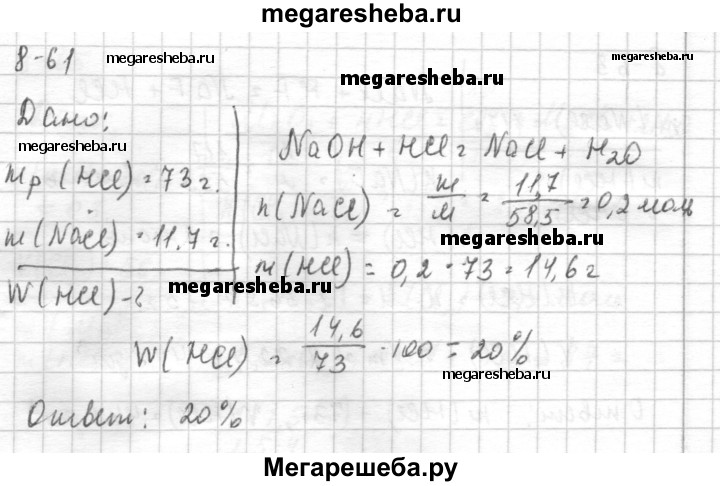 megaresheba.ru
8-61
megaresheba.ru
megaresheba.ru
megaresheba.ru
Дано:
megaresheba.ru
NaOH + HCl = NaCl + H₂O
mр (HCl) = 73 г.
n(NaCl) = m/M = 11,7/58,5 = 0,2 моль
megaresheba.ru
m (NaCl) = 11,7 г.
megaresheba.ru
W(HCl) - ?
m(HCl) = 0,2 · 73 = 14,6 г
megaresheba.ru
W(HCl) = 14,6/73 · 100 = 20%
megaresheba.ru
Ответ: 20%
Мегарешеба.ру